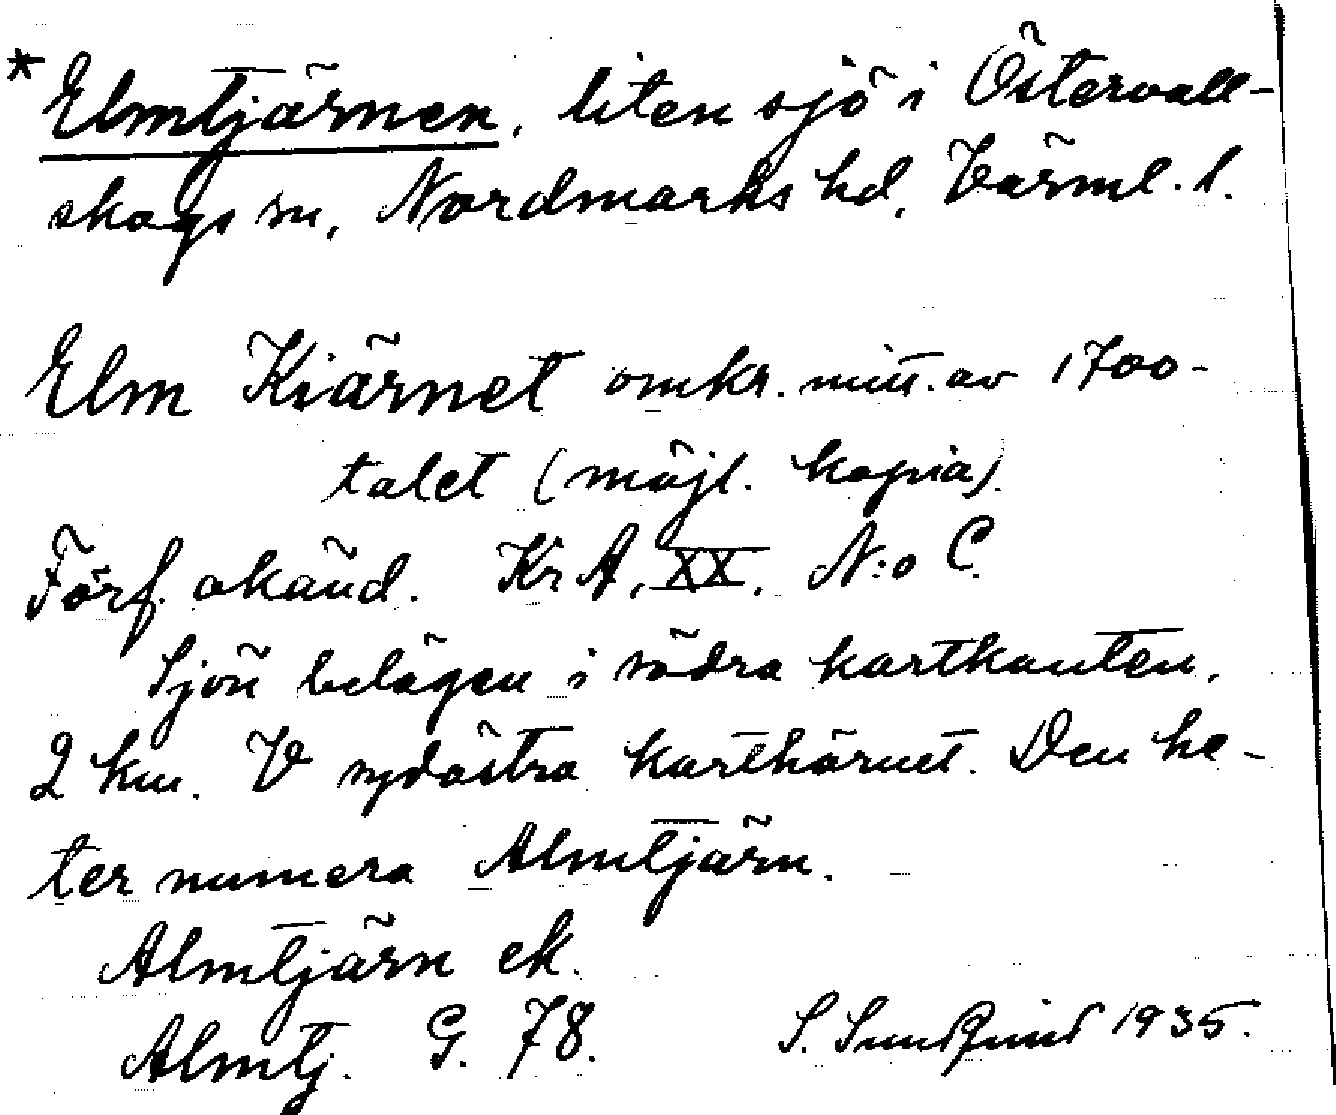 * Elmtjärnen, liten sjö i Östervall-
skogs sn, Nordmarks hd, Värml. l.
Elm Kiärnet omkr. mitt. av 1700-
talet (möjl. kopia).
Förf. okänd. Kr A, XX, N:o C.
Sjön belägen i södra kartkanten,
2 km. V sydöstra karthörnet. Den he-
ter numera Almtjärn.
Almtjärn ek.
Almtj. G. 78.
S. Sundquist 1935.